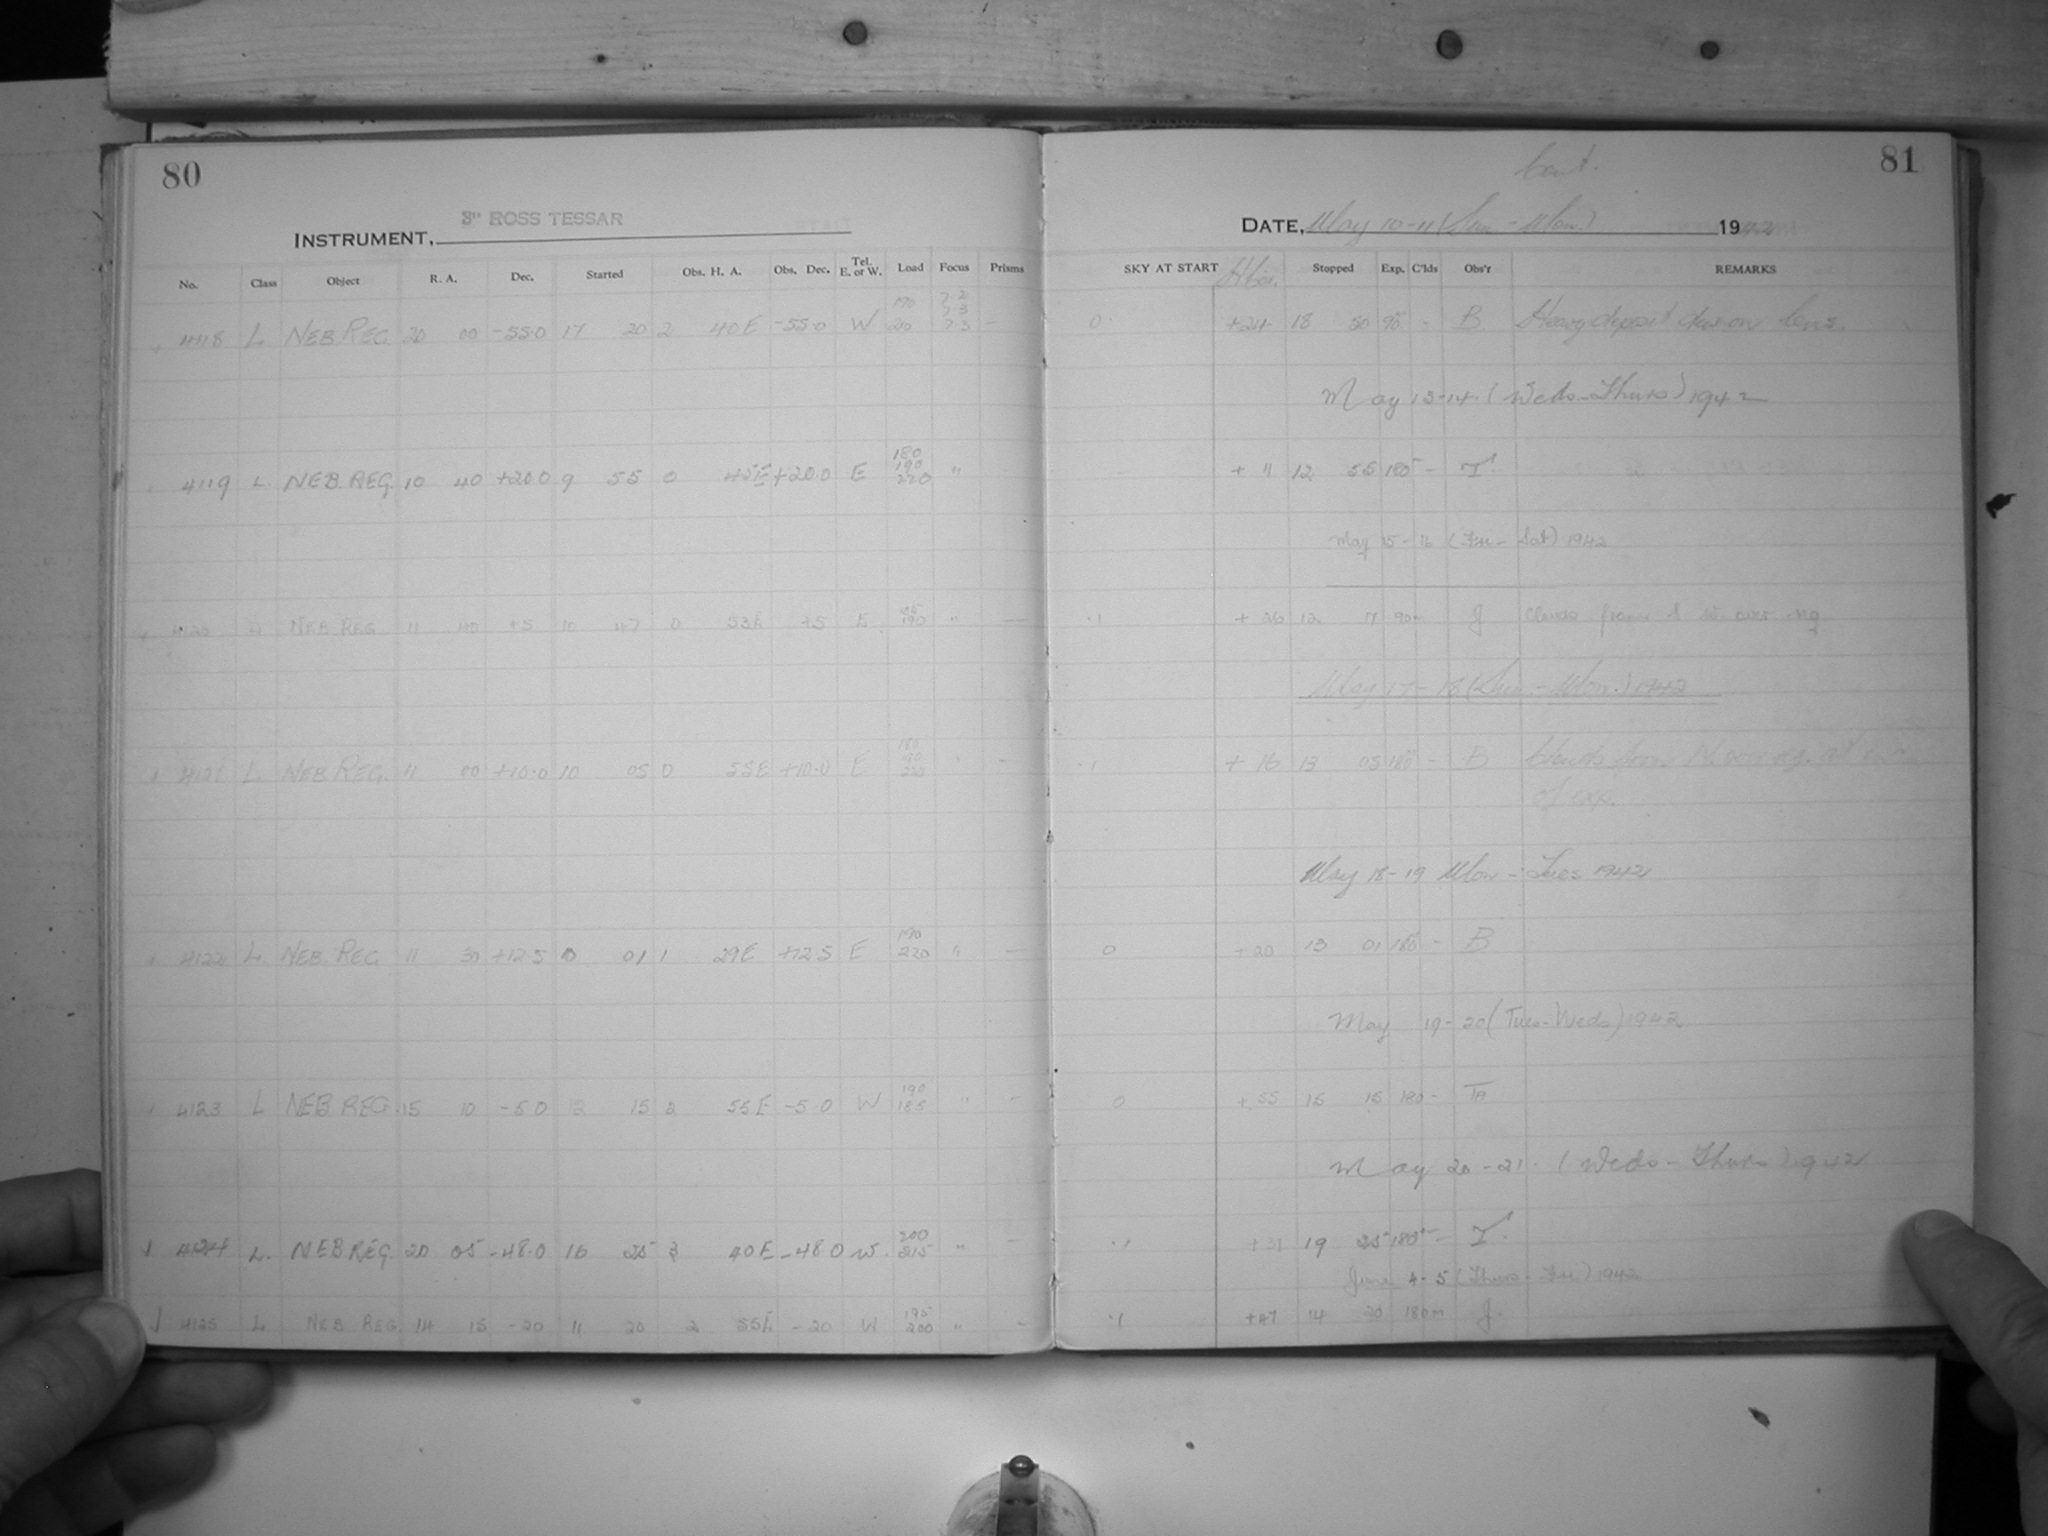 80
INSTRUMENT, 3" ROSS TESSAR
No. Class Object R. A. Dec. Started Obs. H. A. Obs. Dec. Tel. E. or W. Load Focus Prisms
4118 L NEB REG 20 00 -55.0 17 20 2 40E -55.0 W 210 7.3 -
4119 L. NEB. REG. 10 40 +20.0 9 55 0 +20.0 E 180 190 220 " -
L NEB REG 11 40 +5 10 47 0 53E +5 E 190 " -
4121 L NEB REG. 11 00 +10.0 10 05 0 55E +10.0 E 180 190 220 " -
4122 L. NEB. REG. 11 30 +12.5 01 1 29E +12.5 E 190 220 " -
4123 L NEB REG. 15 10 -5.0 12 15 2 55E -5.0 W 190 185 " -
4124 L. NEB REG. 20 05 -48.0 16 25 3 40E -48.0 W. 200 215 " -
4125 L NEB REG. 14 15 -20 11 20 2 55E -20 W 195 200 " -
Cont.
81
DATE, May 10-11 (Sun. - Mon.) 1942
SKY AT START Stopped Exp. C'lds Obs'r REMARKS
0. +24 18 50 90 - B. Heavy deposit dew on lens.
May 13-14. (Weds-Thurs) 1942
+ 11 12 55 180 - I.
May 15-16 (Fri - Sat) 1942
.1 + 26 12 17 90m J Clouds from over reg
May 17-18 (Sun. - Mon.) 1942
.1 + 16 13 05 180 - B Clouds from N. over reg. at
of exp.
May 18-19 Mon - Tues 1942
0 +20 13 01 180 - B
May 19-20 (Tues-Weds) 1942
0 +.55 15 15 180 - TA
May 20-21. (Weds-Thurs) 1942
.1 +31 19 25 180 - I.
June 4-5 (Thurs-Fri) 1942
.1 +47 14 20 180m J.